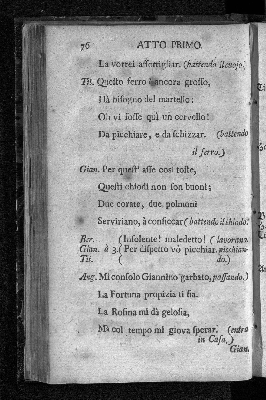 76 ATTO PRIMO.
La vorrei assottigliar. (battendo il cuojo.)
Tis. Questo ferro è ancora grosso,
Hà bisogno del martello:
Oh vi fosse quì un cervello!
Da picchiare, e da schizzar. (battendo
il ferro.)
Gian. Per quest' asse così toste,
Questi chiodi non son buoni;
Due corate, due polmoni
Serviriano, à conficcar (battendo il chiodo.)
Ber. (Insolente! maledetto! (lavoran-
Gian. à 3. (Per dispetto vò picchiar. picchian-
Tis. ( do.)
Ang. Mi consolo Giannino garbato, passando.)
La Fortuna propizia ti sia.
La Rosina mi dà gelosia,
Mà col tempo mi giova sperar. (entra
in Casa.)
Gian.